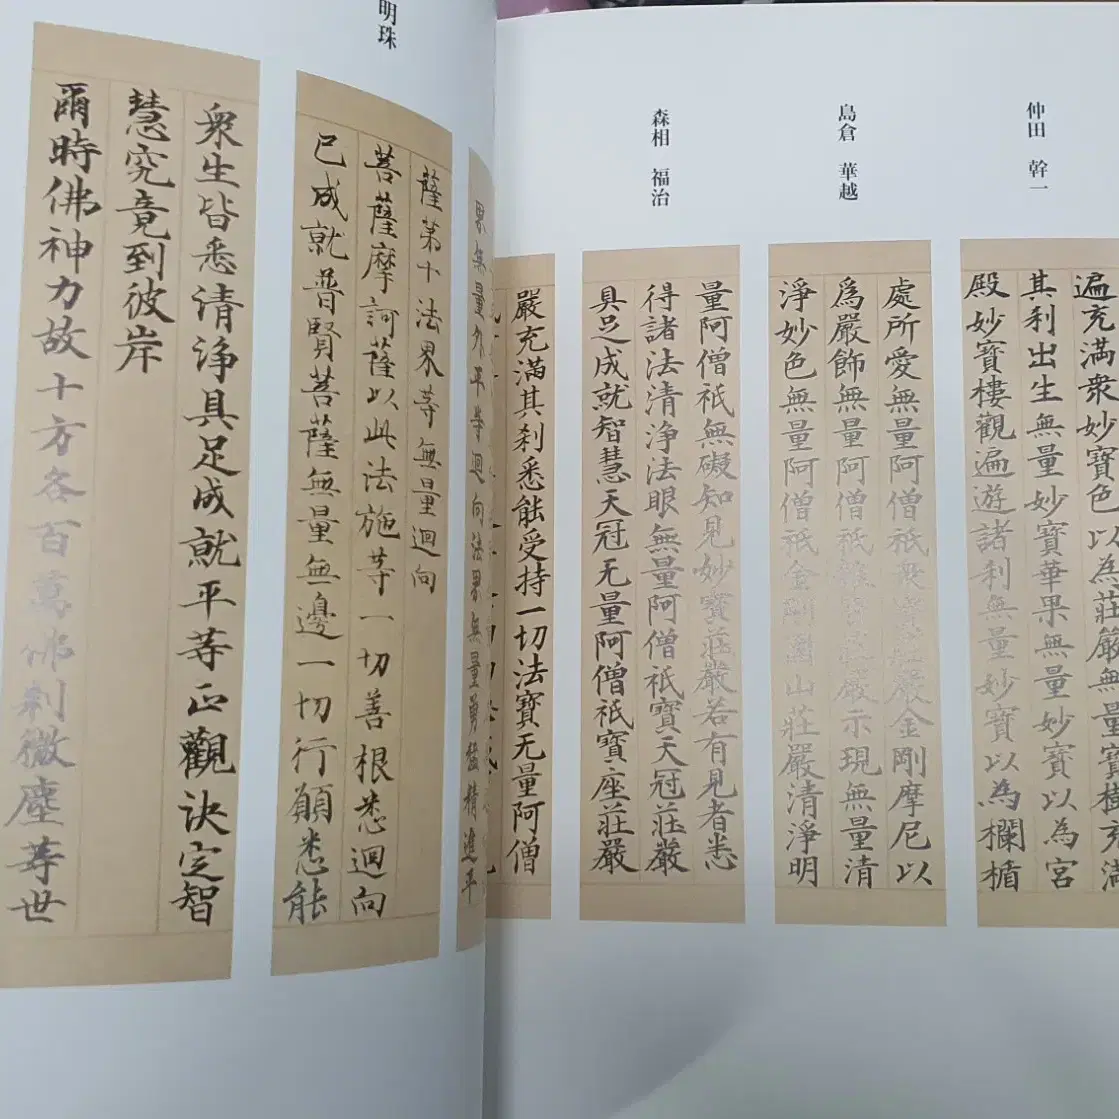 仲田 幹一
遍充滿衆妙寶色以為莊嚴無量寶樓充滿
其刹出生無量妙寶華果無量妙寶以為宮
殿妙寶樓觀遍遊諸刹無量妙寶以為欄楯
島倉 華越
處所愛無量阿僧祇衆寶莊嚴金剛摩尼以
爲嚴飾無量阿僧祇雜寶莊嚴示現無量清
淨妙色無量阿僧祇金剛圍山莊嚴清淨明
森相 福治
量阿僧祇無礙知見妙寶莊嚴若有見者悉
得諸法清淨法眼無量阿僧祇寶天冠莊嚴
具足成就智慧天冠无量阿僧祇寶座莊嚴
嚴充滿其刹悉能受持一切法寶无量阿僧
界無量外平等迴向法界無量勇猛精進平
明珠
薩第十法界等無量迴向
菩薩摩訶薩以此法施等一切善根悉迴向
已成就普賢菩薩無量無邊一切行願悉能
衆生皆悉清淨具足成就平等正觀決定智
慧究竟到彼岸
爾時佛神力故十方各百萬佛刹微塵等世